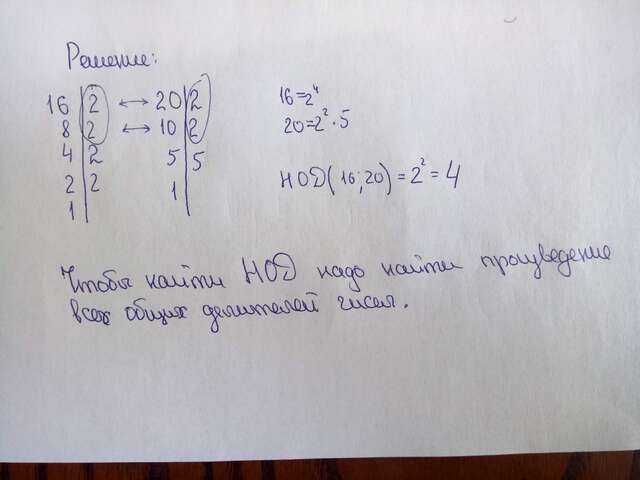 Решение:
16|2 ↔ 20|2
8|2 ↔ 10|2
4|2 5|5
2|2 1|
1|
16=2⁴
20=2²·5
НОД(16;20)=2²=4
Чтобы найти НОД надо найти произведение
всех общих делителей чисел.